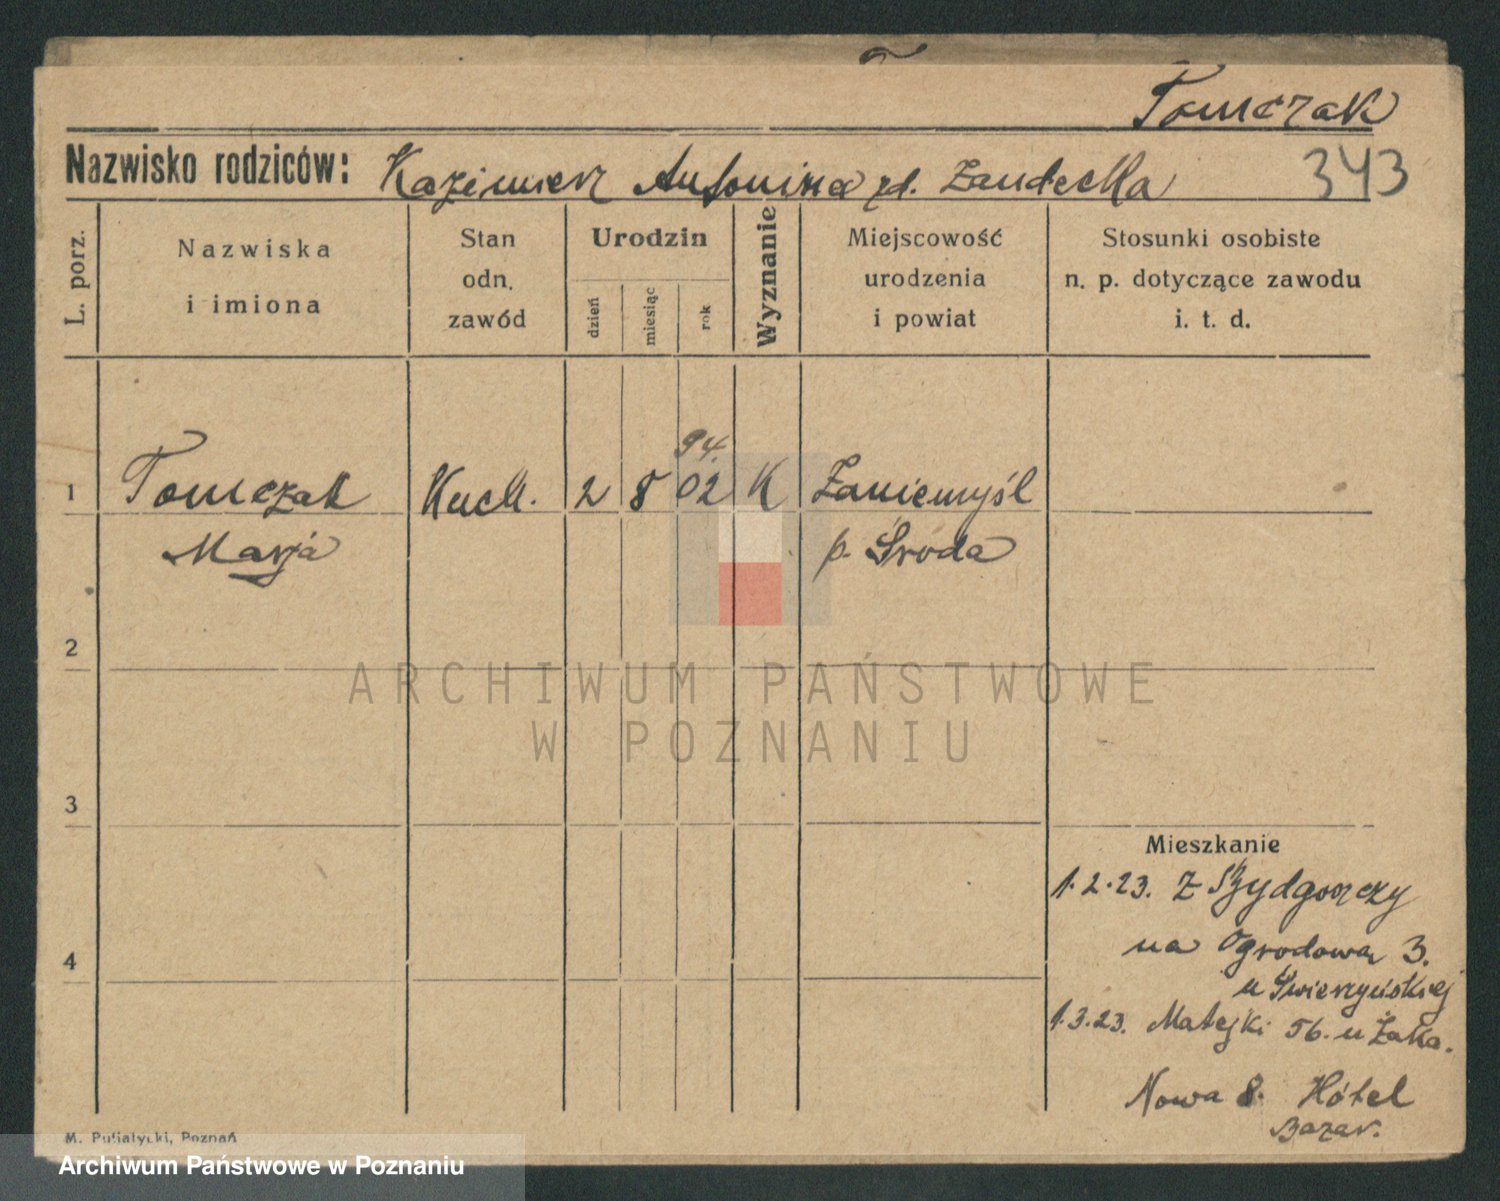 Tomczak
Nazwisko rodziców: Kazimierz Antonina zd. Zandecka
343
L. porz.
Nazwiska
i imiona
Stan
odn.
zawód
Urodzin
dzień
miesiąc
rok
Wyznanie
Miejscowość
urodzenia
i powiat
Stosunki osobiste
n. p. dotyczące zawodu
i. t. d.
94.
1 Tomczak Kuch. 2 8 02 K Zaniemyśl
Marja p. Środa
2
ARCHIWUM PAŃSTWOWE
W POZNANIU
3
Mieszkanie
1.2.23. Z Bydgoszczy
na Ogrodową 3.
4
u Świerzyńskiej
1.3.23. Matejki 56. u Żaka.
Nowa 8. Hótel
Bazar.
M. Putiatycki, Poznań
Archiwum Państwowe w Poznaniu